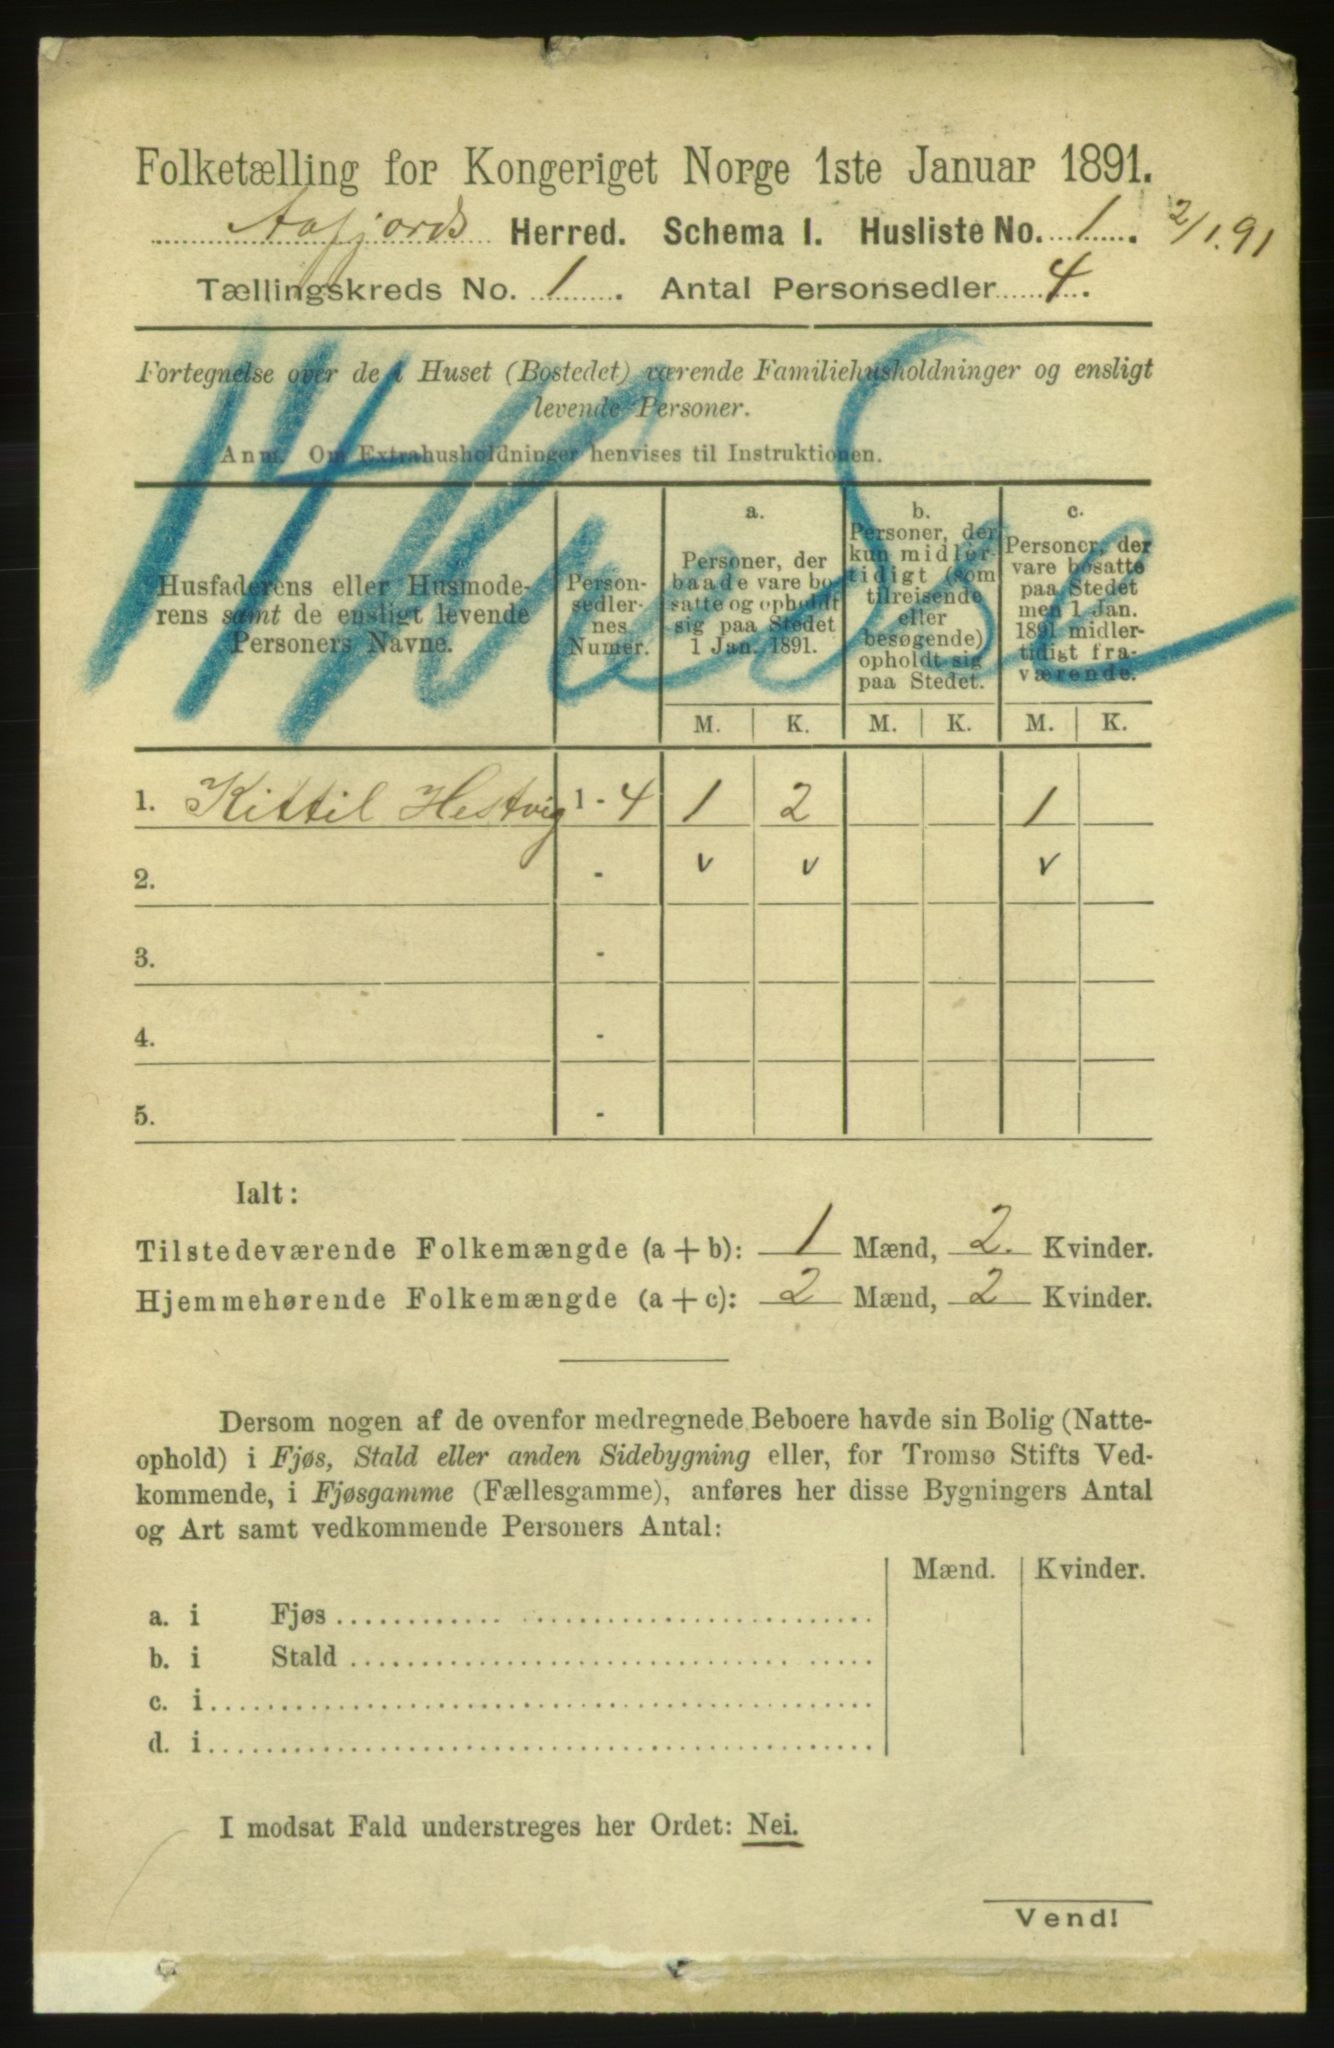 Folketælling for Kongeriget Norge 1ste Januar 1891.
Aafjords Herred. Schema I. Husliste No. 1. 2/1.91
Tællingskreds No. 1. Antal Personsedler 4.
Fortegnelse over de i Huset (Bostedet) værende Familiehusholdninger og ensligt
levende Personer.
Anm. Om Extrahusholdninger henvises til Instruktionen.
Husfaderens eller Husmode-
rens samt de ensligt levende
Personers Navne.
Person-
sedler-
nes
Numer.
a.
Personer, der
baade vare bo-
satte og opholdt
sig paa Stedet
1 Jan. 1891.
b.
Personer, der
kun midler-
tidigt (som
tilreisende
eller
besøgende)
opholdt sig
paa Stedet.
c.
Personer, der
vare bosatte
paa Stedet
men 1 Jan.
1891 midler-
tidigt fra-
værende.
M. K. M. K. M. K.
1. Kittil Hestvig 1 - 4 1 2 1
2. - v v v
3. -
4. -
5. -
Ialt:
Tilstedeværende Folkemængde (a + b): 1 Mænd, 2. Kvinder.
Hjemmehørende Folkemængde (a + c): 2 Mænd, 2 Kvinder.
Dersom nogen af de ovenfor medregnede Beboere havde sin Bolig (Natte-
ophold) i Fjøs, Stald eller anden Sidebygning eller, for Tromsø Stifts Ved-
kommende, i Fjøsgamme (Fællesgamme), anføres her disse Bygningers Antal
og Art samt vedkommende Personers Antal:
Mænd. Kvinder.
a. i Fjøs
b. i Stald
c. i
d. i
I modsat Fald understreges her Ordet: Nei.
Vend!